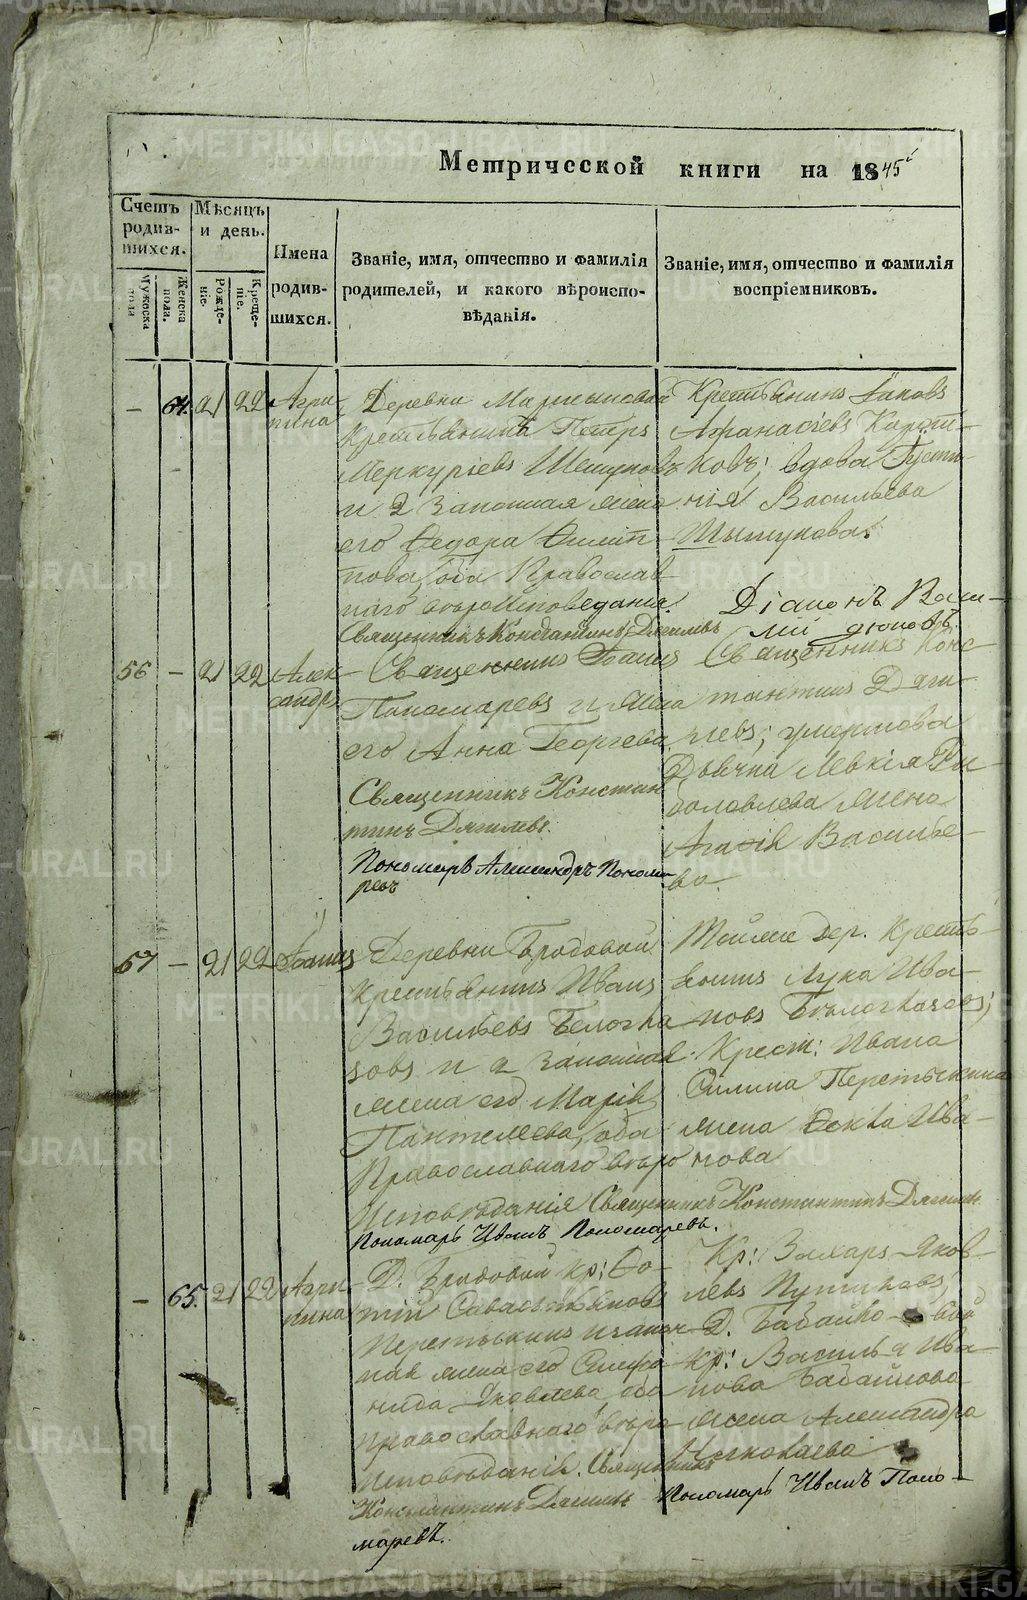 METRIKI.GASO-URAL.RU
Метрической книги на 1845й
Счетъ родив-шихся.
Мужеска пола
Женска пола.
Мѣсяцъ и день.
Рожде-ніе.
Креще-ніе.
Имена родив-шихся.
Званіе, имя, отчество и фамилія родителей, и какого вѣроиспо-вѣданія.
Званіе, имя, отчество и фамилія воспріемниковъ.
— 64. 21 22 Агри-
пина
Деревни
Крестьянинъ Петръ
Меркуріевъ Шешуковъ
и 2 законная жена
его Ѳедора Филип-
пова, оба Православ-
наго вѣроисповеданія.
Священникъ Константинъ Дягилевъ
Крестьянинъ Іаковъ
Афанасіевъ Корот-
ковъ; вдова Густи-
нія Васильева
Шышукова.
Діаконъ Васи-
лій
56 — 21 22 Алек-
сандръ
Священникъ Іоаннъ
Пономаревъ и жена
его Анна Георгева
Священникъ Констан
тинъ Дягилевъ.
Пономарь Александръ Понома
ревъ
Священникъ Конс-
тантинъ Дяги-
левъ; умершова
Дьячка Левкія Ры-
боловлева жена
Агафія Василье-
ва.
57 — 21 22 Іоаннъ
Деревни Бродовой
Крестьянинъ Иванъ
Васильевъ Белогла
зовъ и 2 законная
жена его Марія
Пантелеева, оба
Православнаго вѣро
Исповѣданія Священникъ Константинъ Дягилевъ
Пономарь Иванъ Пономаревъ.
Тойже дер. Кресть-
янинъ Лука Ива-
новъ Бѣлоглазовъ;
Крест: Ивана
Силина Перетыкина
жена Ѳекла Ива-
нова
— 65. 21 22 Агри-
пина
Д. Бродовой кр: Фо-
тій Савастьяновъ
Перетыкинъ и закон-
ная жена его
Яковлева, оба
православнаго вѣро-
исповѣданія. Священникъ
Константинъ Дягилевъ
Пономарь Иванъ Поно-
маревъ.
Кр: Захаръ Яков-
левъ Путиловъ;
Д.
кр: Василья Ива-
нова
жена Александра
Николаева